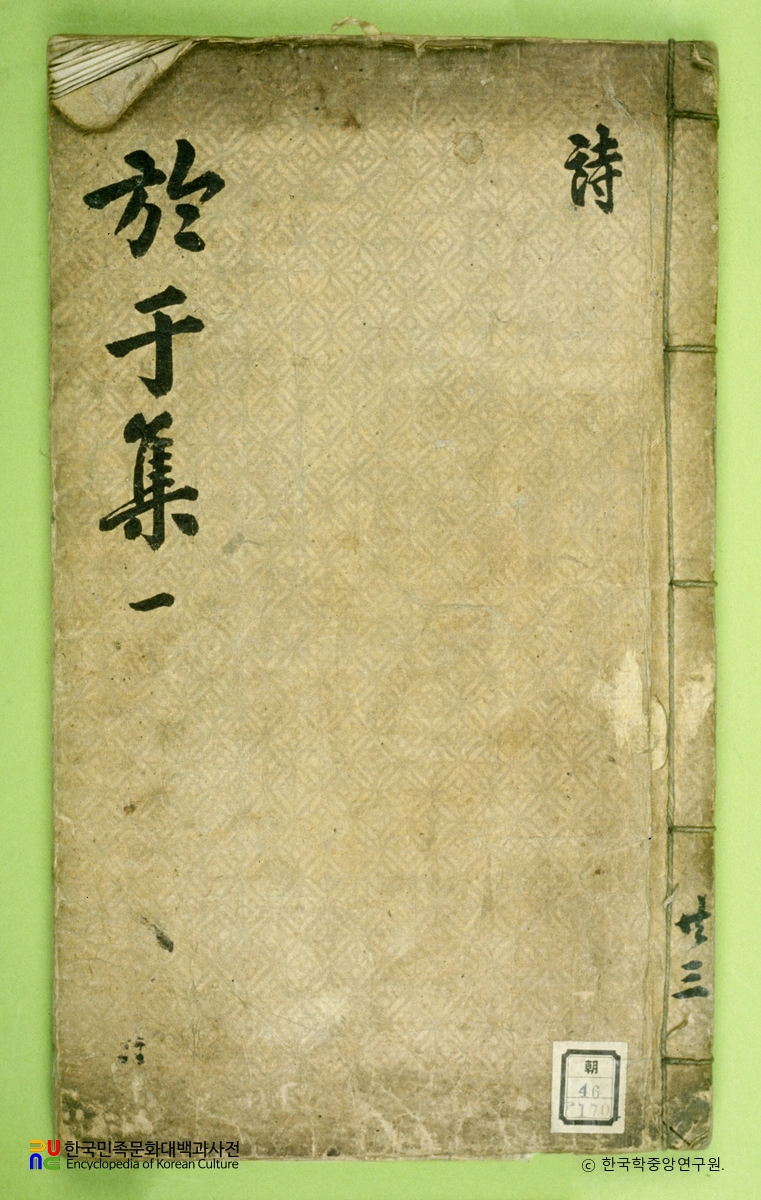 詩
於于集 一
共三
朝
46
한국민족문화대백과사전
Encyclopedia of Korean Culture
© 한국학중앙연구원.